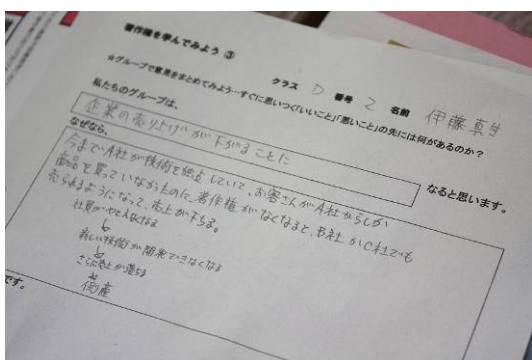 著作権を学んでみよう ③
クラス D 番号 2 名前 伊藤真生
☆グループで意見をまとめてみよう…すぐに思いつく「いいこと」「悪いこと」の先には何があるのか？
私たちのグループは、
企業の売り上げが下がることに
なると思います。
なぜなら、
今までA社が技術を独占していて、お客さんがA社からしか
商品を買っていなかったのに、著作権がなくなると、B社かC社でも
売られるようになって、売上が下ちる。
社員がやとえなくなる
新しい技術が開発できなくなる
さらに売上が落ちる
倒産
です。